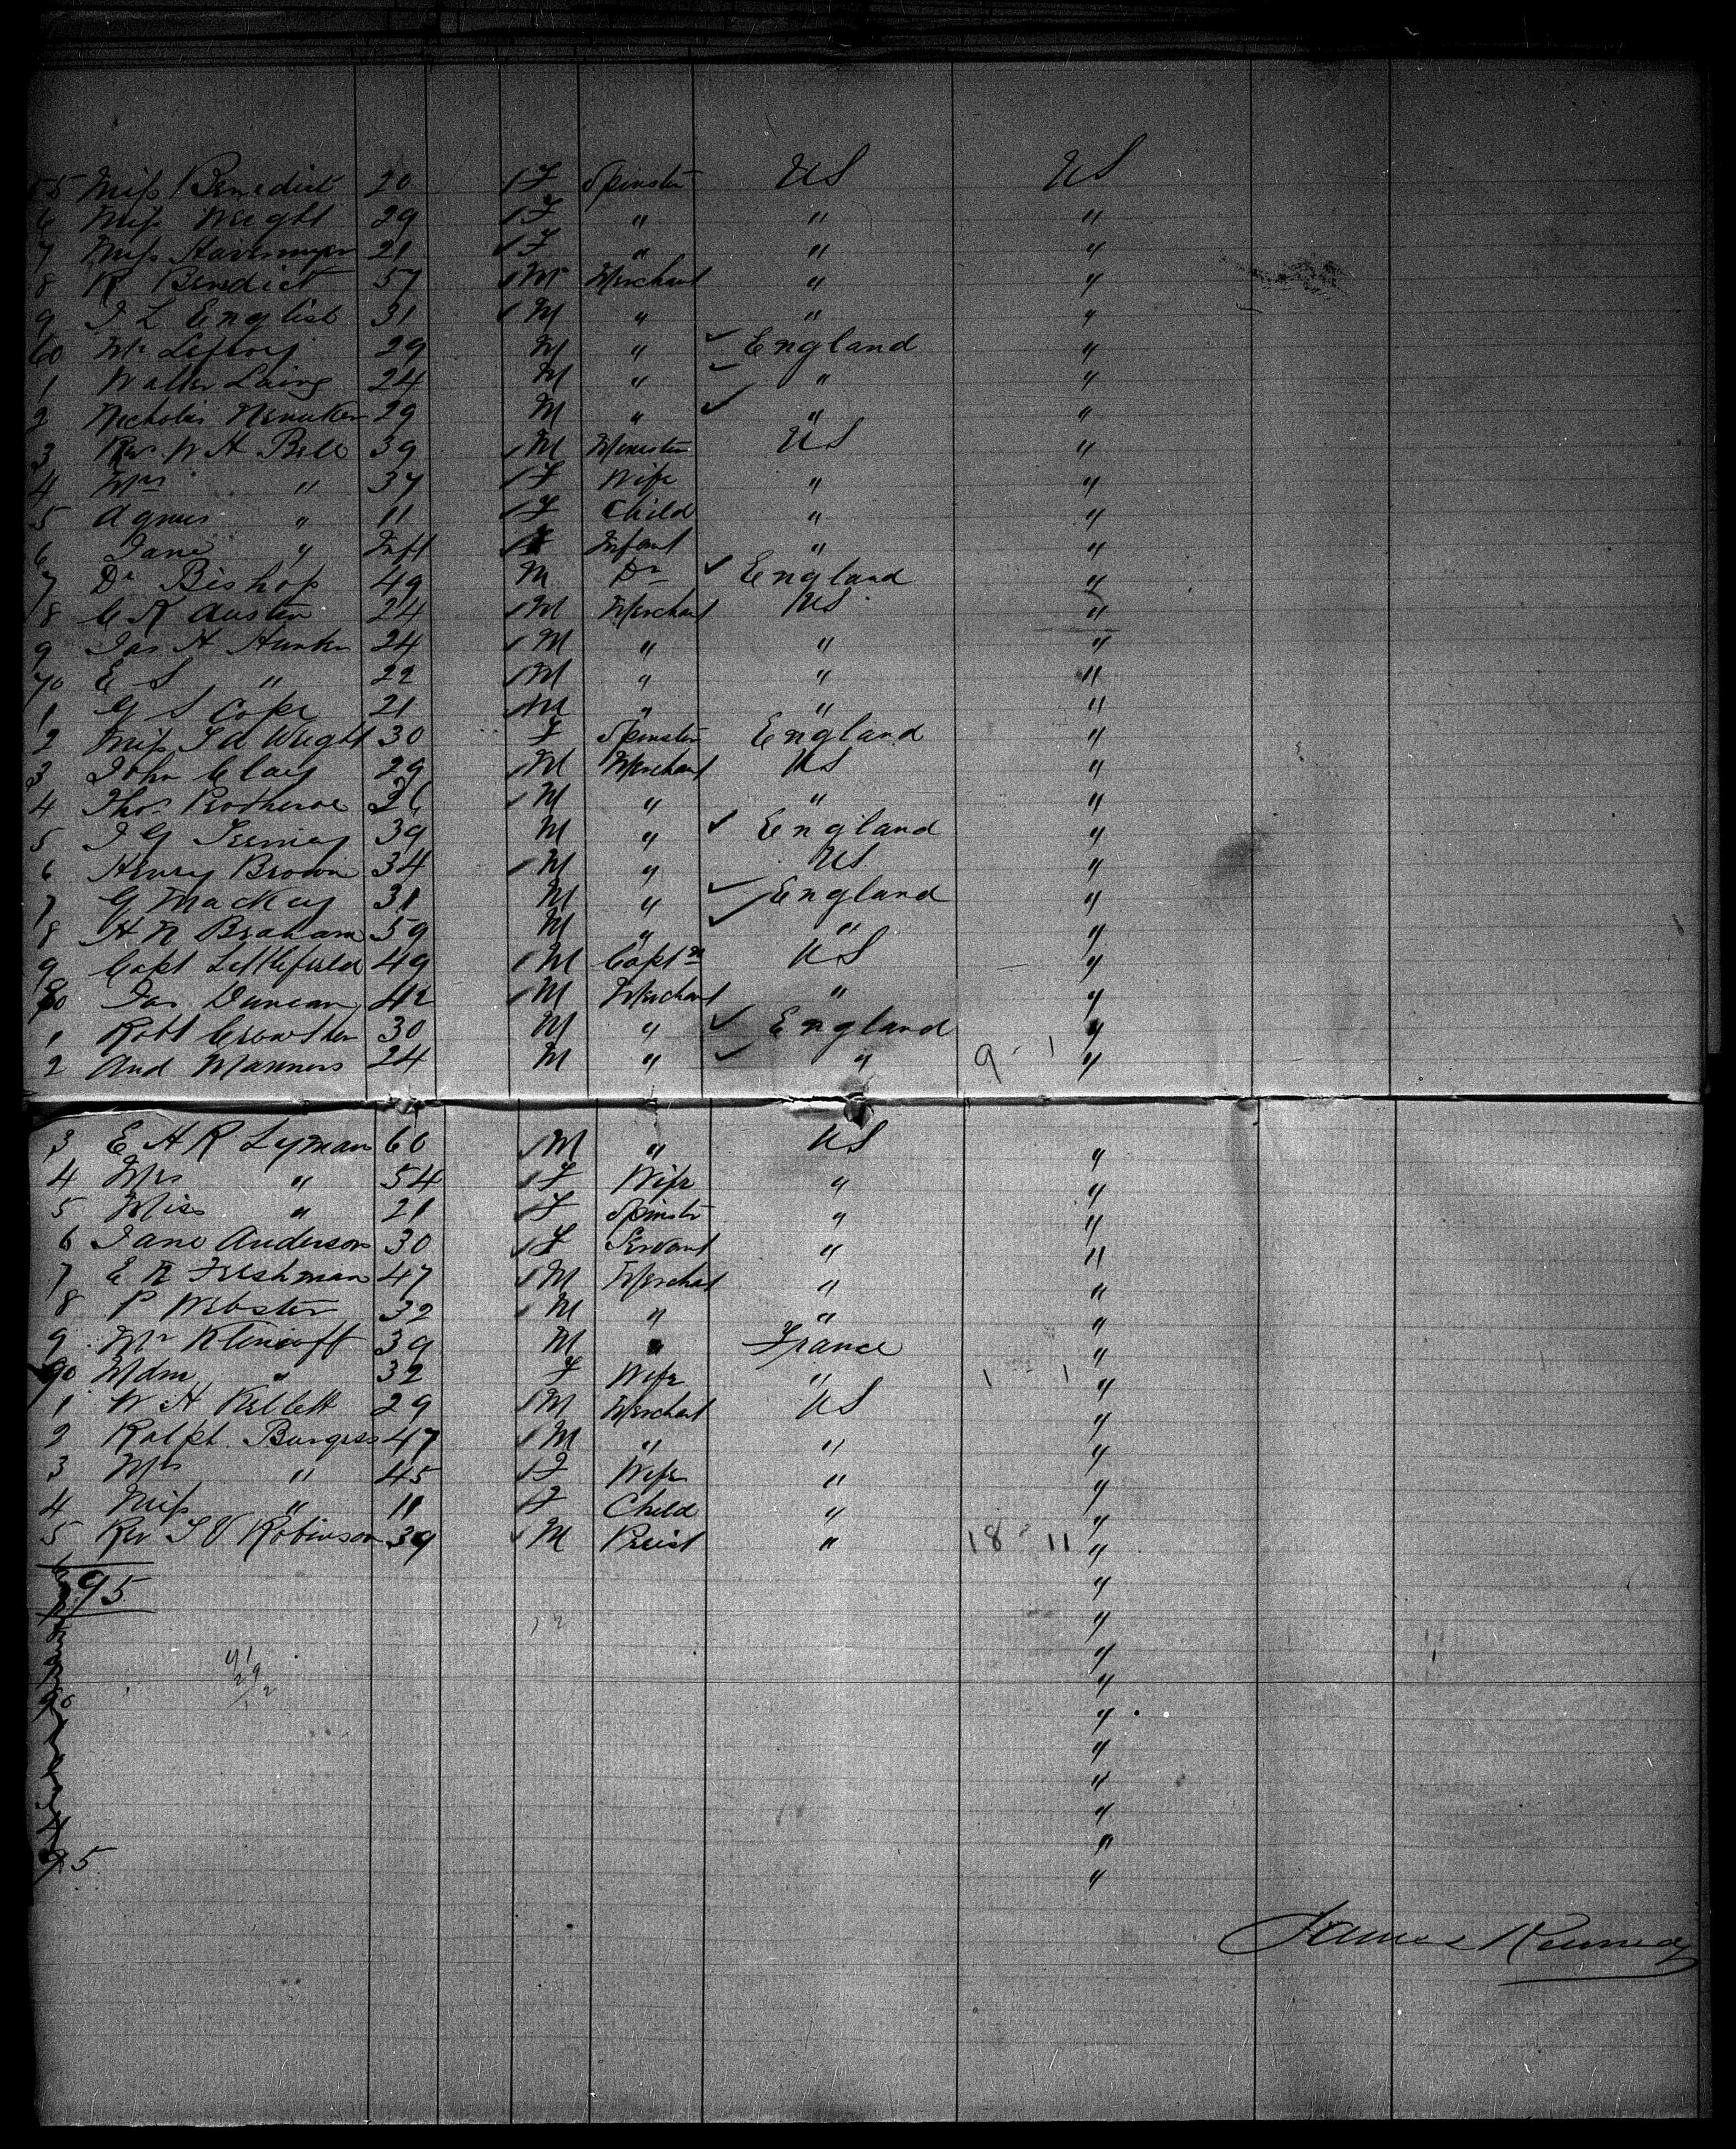 55 Miss Benedict 20 F Spinster US US
6 Miss Wright 29 F " " "
7 Miss Havemeyer 21 F " " "
8 R Benedict 57 M Merchant " "
9 J L English 31 M " " "
60 Mr Lefroy 29 M " England "
1 Walter Laing 24 M " " "
2 Nicholas 29 M " " "
3 Rev W H Bell 39 M Minister US "
4 Mrs " 37 F Wife " "
5 Agnes " 11 F Child " "
6 Jane " Inft Infant " "
7 Dr Bishop 49 M Dr England "
8 C R Austin 24 M Merchant US "
9 Jas H Hunter 24 M " " "
70 E S " 22 M " " "
1 G S Cope 21 M " " "
2 Miss Wright 30 F Spinster England "
3 John Clay 29 M Merchant US "
4 Thos Protheroe 26 M " " "
5 J G 39 M " England "
6 Henry Brown 34 M " US "
7 G Mackay 31 M " England "
8 H N Braham 59 M " " "
9 Capt Littlefield 49 M Captn US "
80 Jas Duncan 42 M Merchant " "
1 Robt Crowther 30 M " England "
2 And Manners 24 M " " 9 - 1 "
3 E H R Lyman 60 M " US "
4 Mrs " 54 F Wife " "
5 Miss " 21 F Spinstr " "
6 Jane Anderson 30 F Servant " "
7 E R Freshman 47 M Merchat " "
8 P Webster 32 M " " "
9 Mr 39 M France "
90 Mdm " 32 F Wife " 1 - 1 "
1 W H Kellett 29 M Merchant US "
2 Ralph Burgess 47 M " " "
3 Mrs " 45 F Wife " "
4 Miss " 11 F Child " "
5 Rev Robinson 39 M Preist " 18 - 11 "
95 "
"
"
"
"
"
"
"
"
95 "
James Kennedy